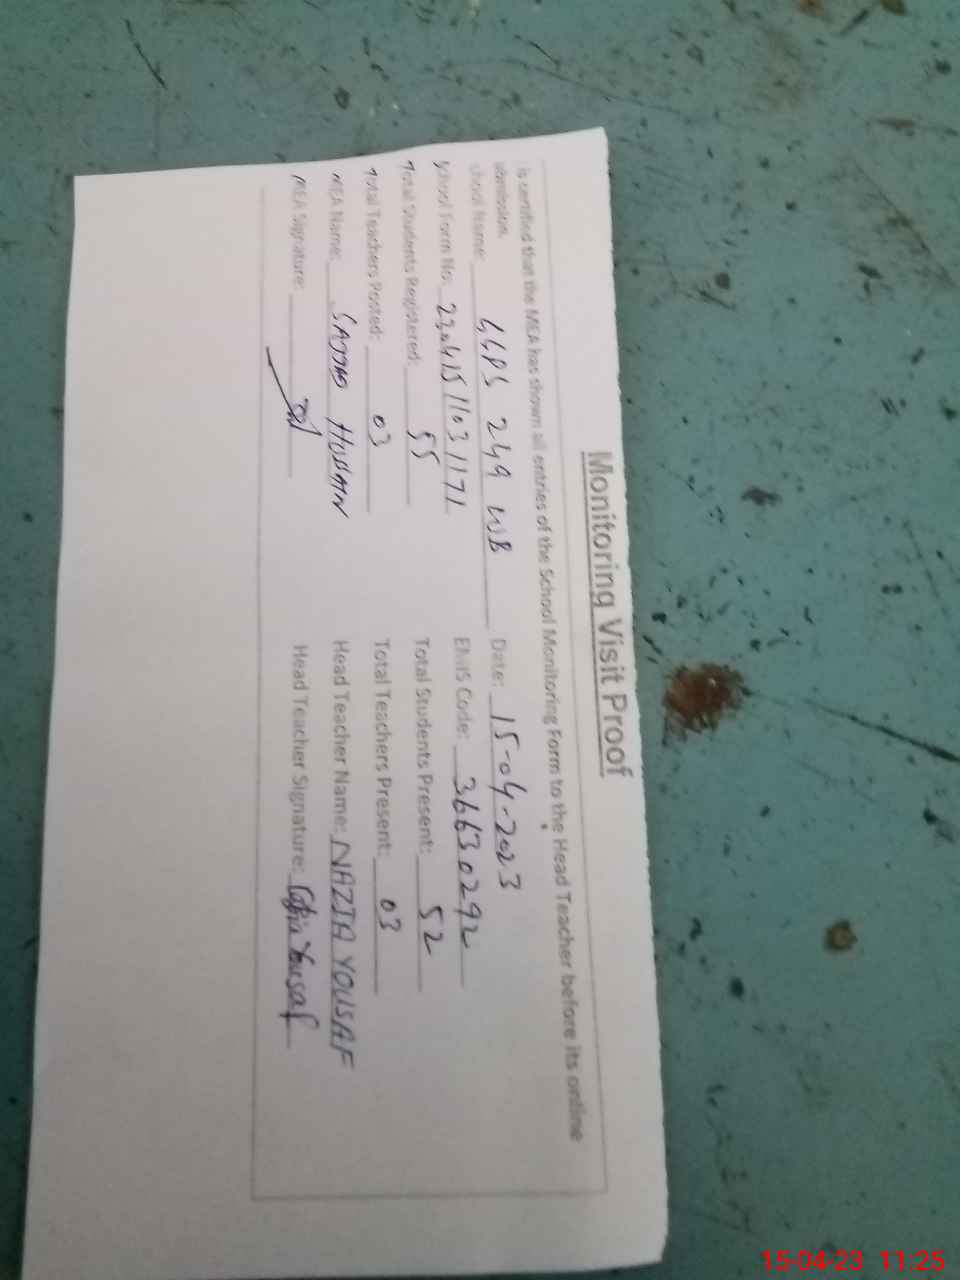 Monitoring Visit Proof
is certified that the MEA has shown all entries of the School Monitoring Form to the Head Teacher before its online
submission.
chool Name: GGPS 249 WB Date: 15-04-2023
School Form No: 23041511031171 EMIS Code: 36630292
Total Students Registered: 55 Total Students Present: 52
Total Teachers Posted: 03 Total Teachers Present: 03
MEA Name: SAJJAD HUSSAIN Head Teacher Name: NAZIA YOUSAF
MEA Signature: Head Teacher Signature: Yousaf
15-04-23 11:25